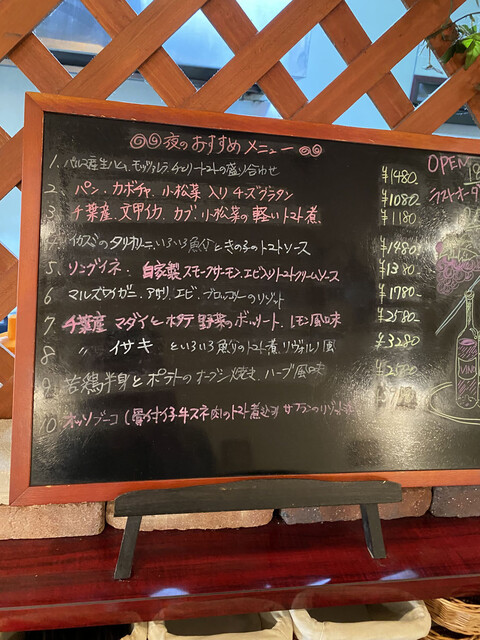 夜のおすすめメニュー
1. パルマ産生ハム、モッツァレラ、チェリートマトの盛り合わせ ¥1480-
2 パン・カボチャ、小松菜入りチーズグラタン ¥1080-
3 千葉産、文甲イカ、カブ、小松菜の軽いトマト煮 ¥1180
4 イカスミのタリオリーニ、いろいろ魚介ときの子のトマトソース ¥1480-
5. リングイネ・自家製スモークサーモン、エビ入りトマトクリームソース ¥1380-
6 マルズワイガニ、アサリ、エビ、ブロッコリーのリゾット ¥1780-
7. 千葉産マダイとホタテ野菜のボッリート、レモン風味 ¥2580-
8 〃 イサキ といろいろ魚介のトマト煮、リヴォルノ風 ¥3280-
9 若鶏半身とポテトのオーブン焼き、ハーブ風味
10. オッソブーコ（骨付仔牛スネ肉のトマト煮込み）サフランのリゾット
OPEN
ラストオーダ
VINO